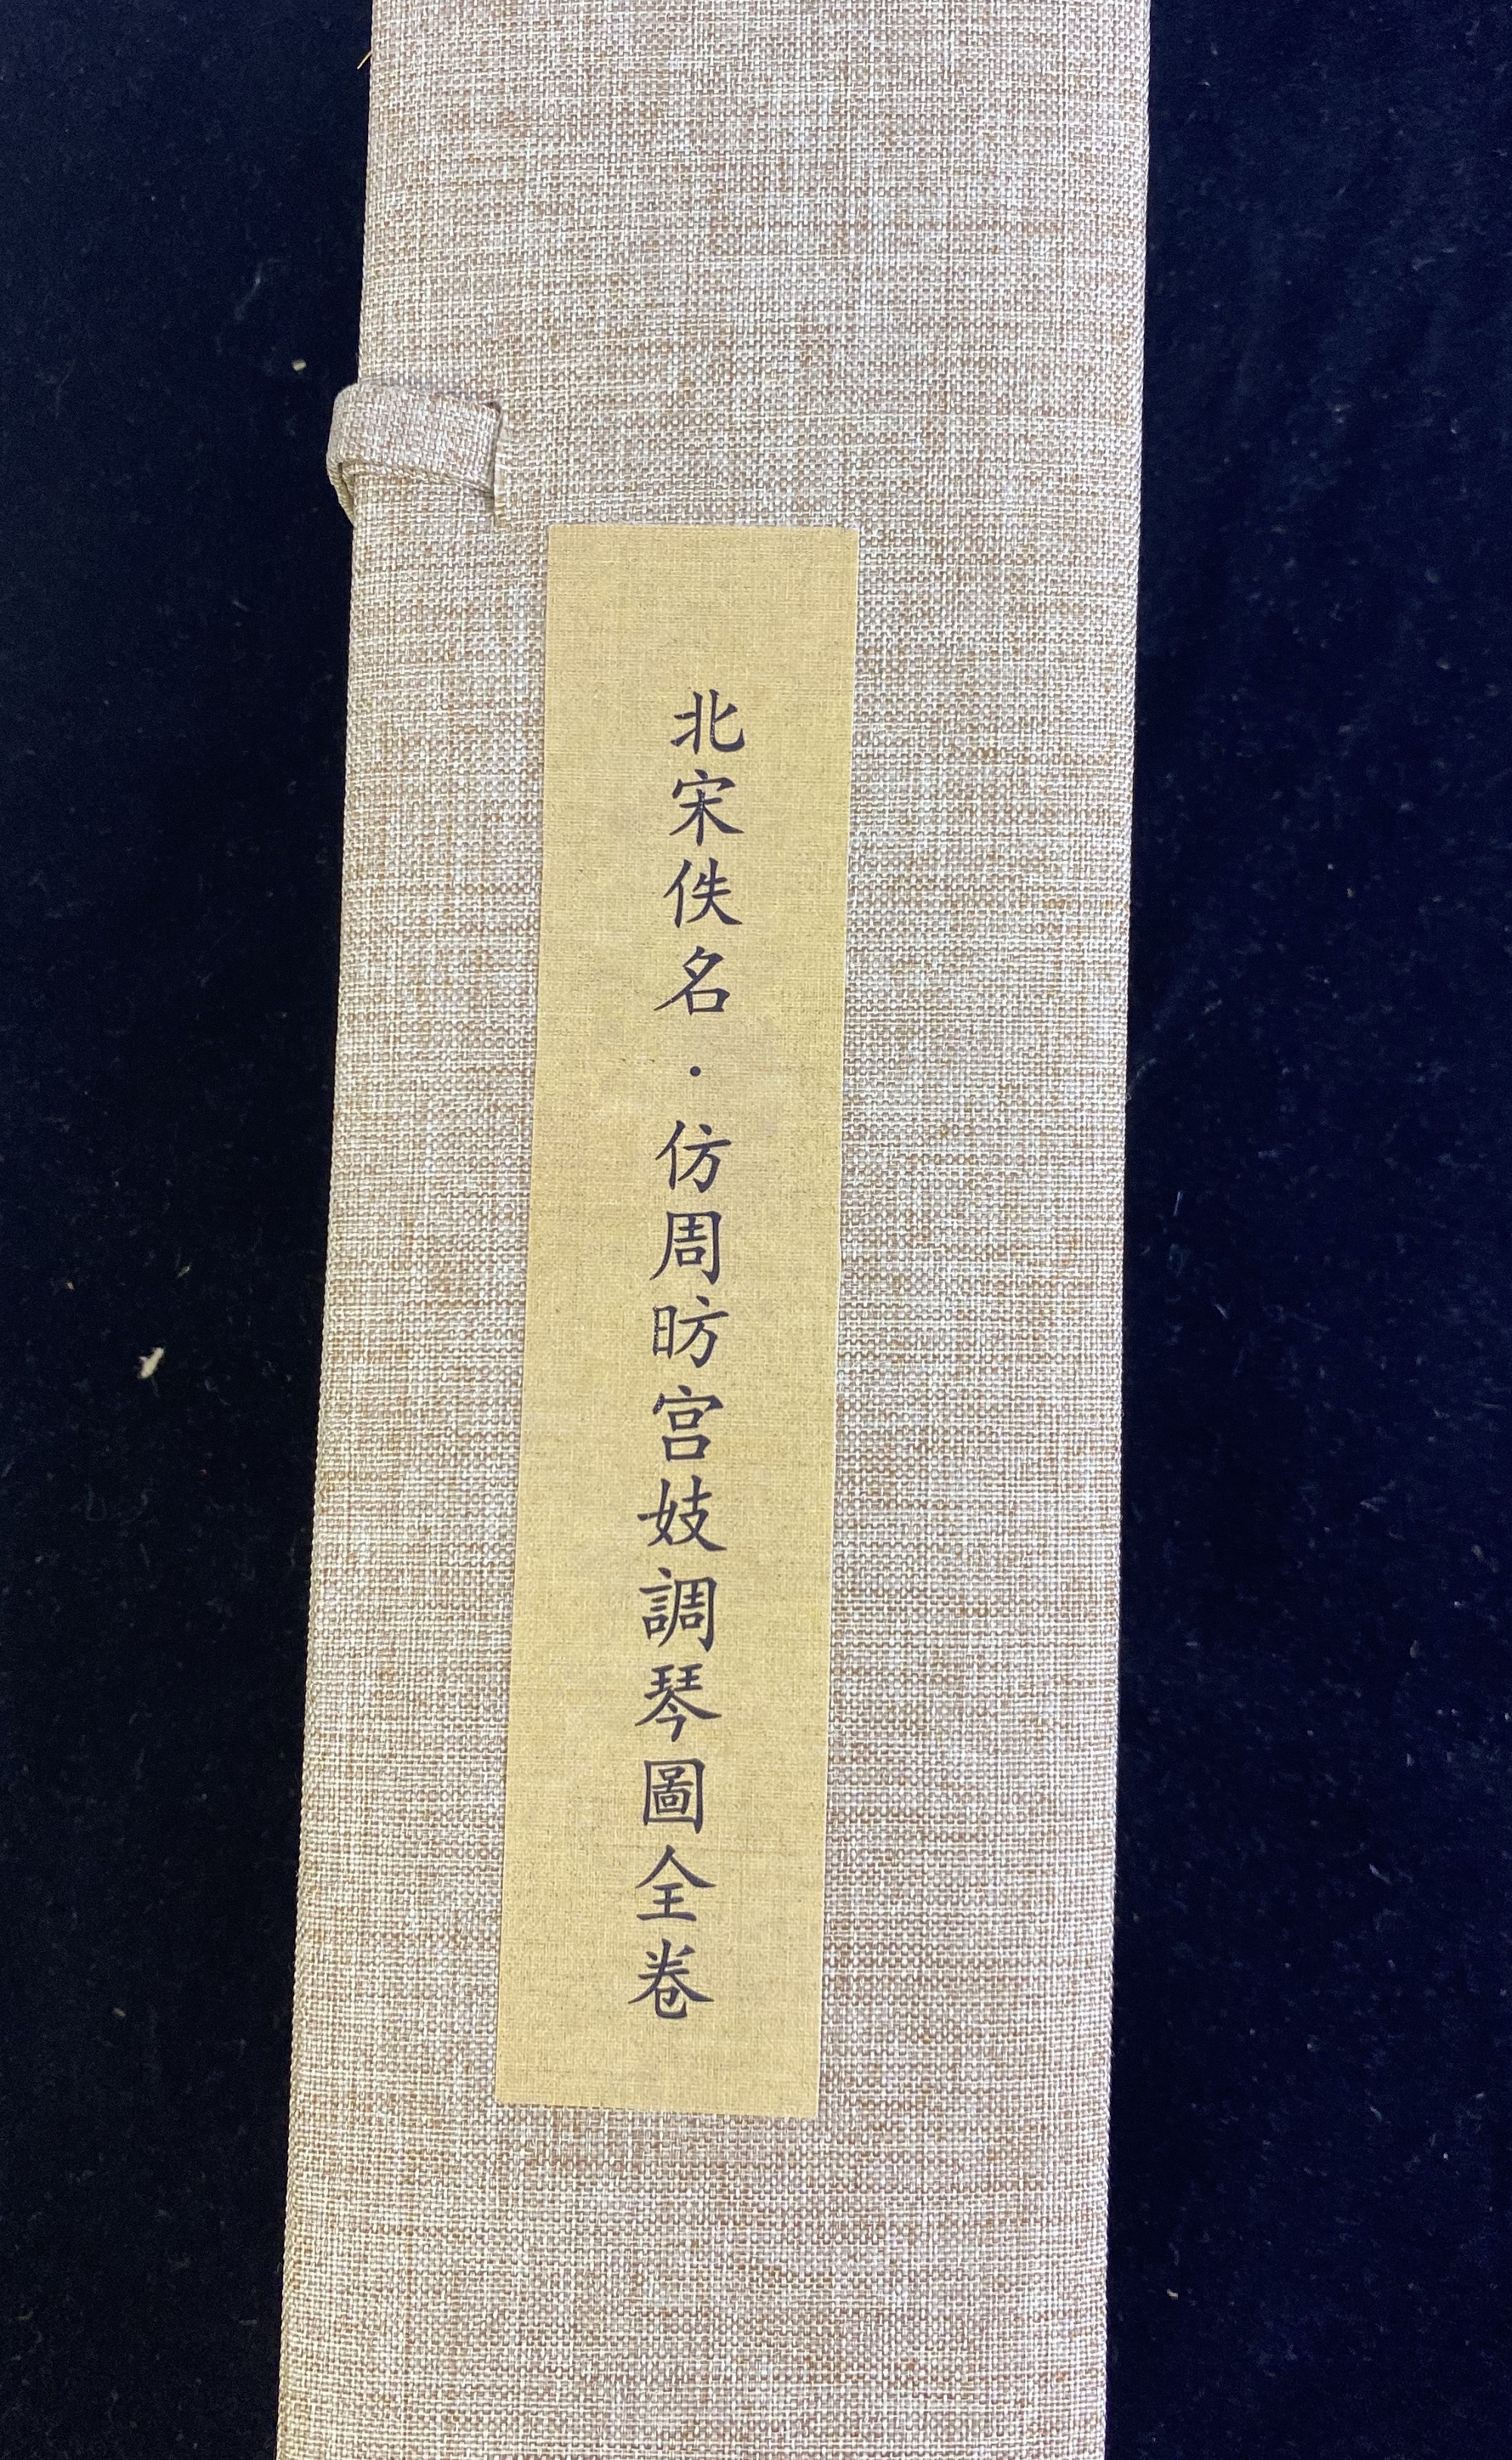 北宋佚名·仿周昉宫妓調琴圖全卷